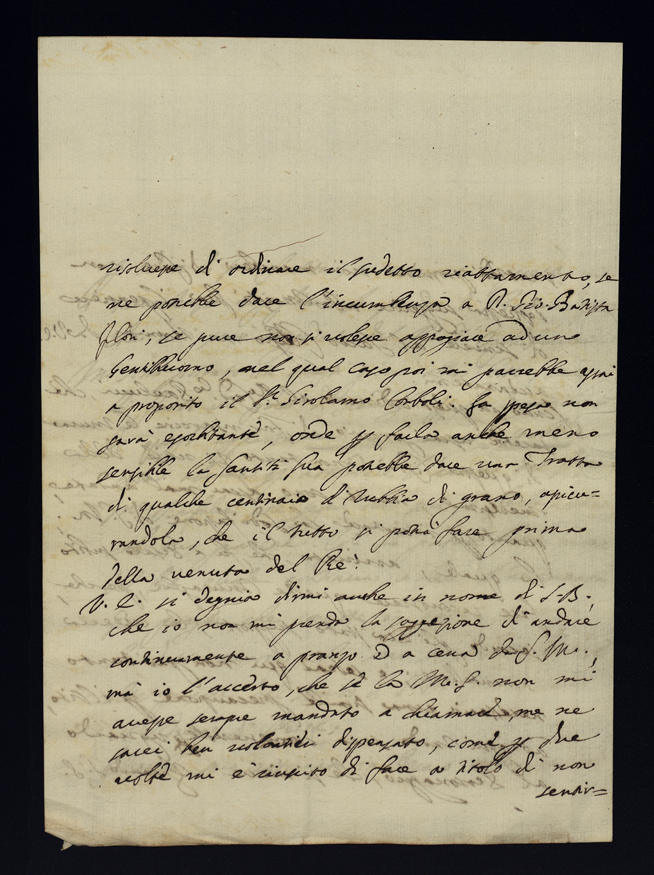 risolvesse di ordinare il sudetto riattamento, se
ne potrebbe dare l'incumbenza a P. Gio: Batista
se pure non si volesse appogiare ad uno
Gentilhuomo, nel qual caso poi mi parrebbe assai
a proposito il Sr. Girolamo Corboli. La spesa non
sarà esorbitante, onde p farla anche meno
sensibile la Santità Sua potrebbe dare una Tratta
di qualche centinaio di rubbia di grano, assicu=
randola, che il tutto si potrà fare prima
della venuta del Rè.
V. E. si degnia dirmi anche in nome di S. B.
che io non mi prenda la soggezione di andare
continuamente a pranzo ed a cena da S. M.,
mà io l'accerto, che se la M. S. non mi
avesse sempre mandato a chiamare, me ne
sarei ben volontieri dispensato, come p due
volte mi è riuscito di fare a titolo di non
sentir=